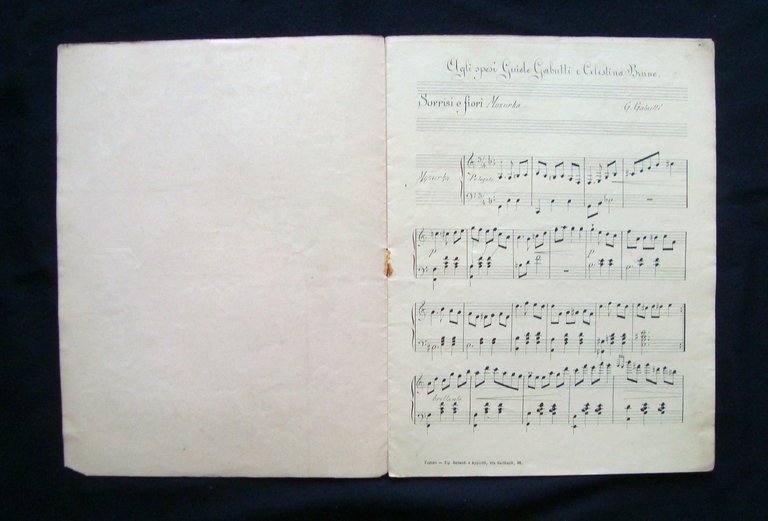 Agli sposi Guido Gabutti e Celestina Bruno.
Sorrisi e fiori Mazurka
G. Gabutti
Mazurka
Preludio
p
p
brillante
Torino — Tip.